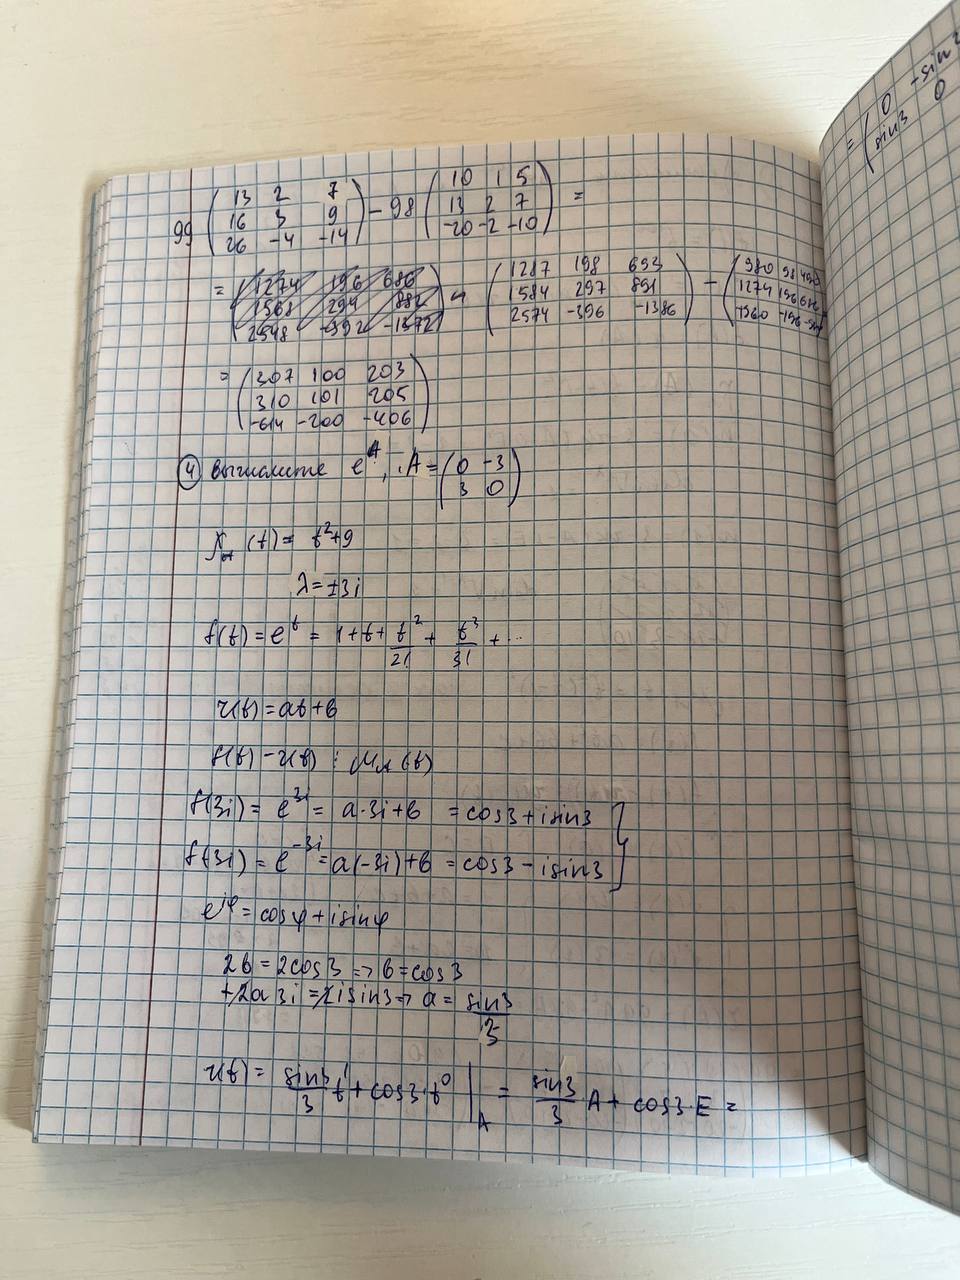 99 ( 13 2 7 ; 16 3 9 ; 26 -4 -14 ) - 98 ( 10 1 5 ; 13 2 7 ; -20 -2 -10 ) =
= ( 1274 196 686 ; 1568 294 882 ; 2548 -392 -1372 ) ( 1287 198 693 ; 1584 297 891 ; 2574 -396 -1386 ) - ( 980 98 490 ; 1274 196 686 ; -1960 -196
= ( 307 100 203 ; 310 101 205 ; -614 -200 -406 )
④ вычислите e^A, A = ( 0 -3 ; 3 0 )
χ_A (t) = t²+9
λ = ±3i
f(t) = e^t = 1 + t + t²/2! + t³/3! + ...
r(t) = at + b
f(t) - r(t) ⋮ μ_A (t)
f(3i) = e^{3i} = a·3i + b = cos3 + i sin3 }
f(-3i) = e^{-3i} = a(-3i) + b = cos3 - i sin3
e^{iφ} = cosφ + i sinφ
2b = 2cos3 => b = cos3
+2a 3i = 2i sin3 => a = sin3/3
r(t) = sin3/3 t¹ + cos3·t⁰ |_A = sin3/3 A + cos3·E =
= ( 0 -sin ; sin3 0